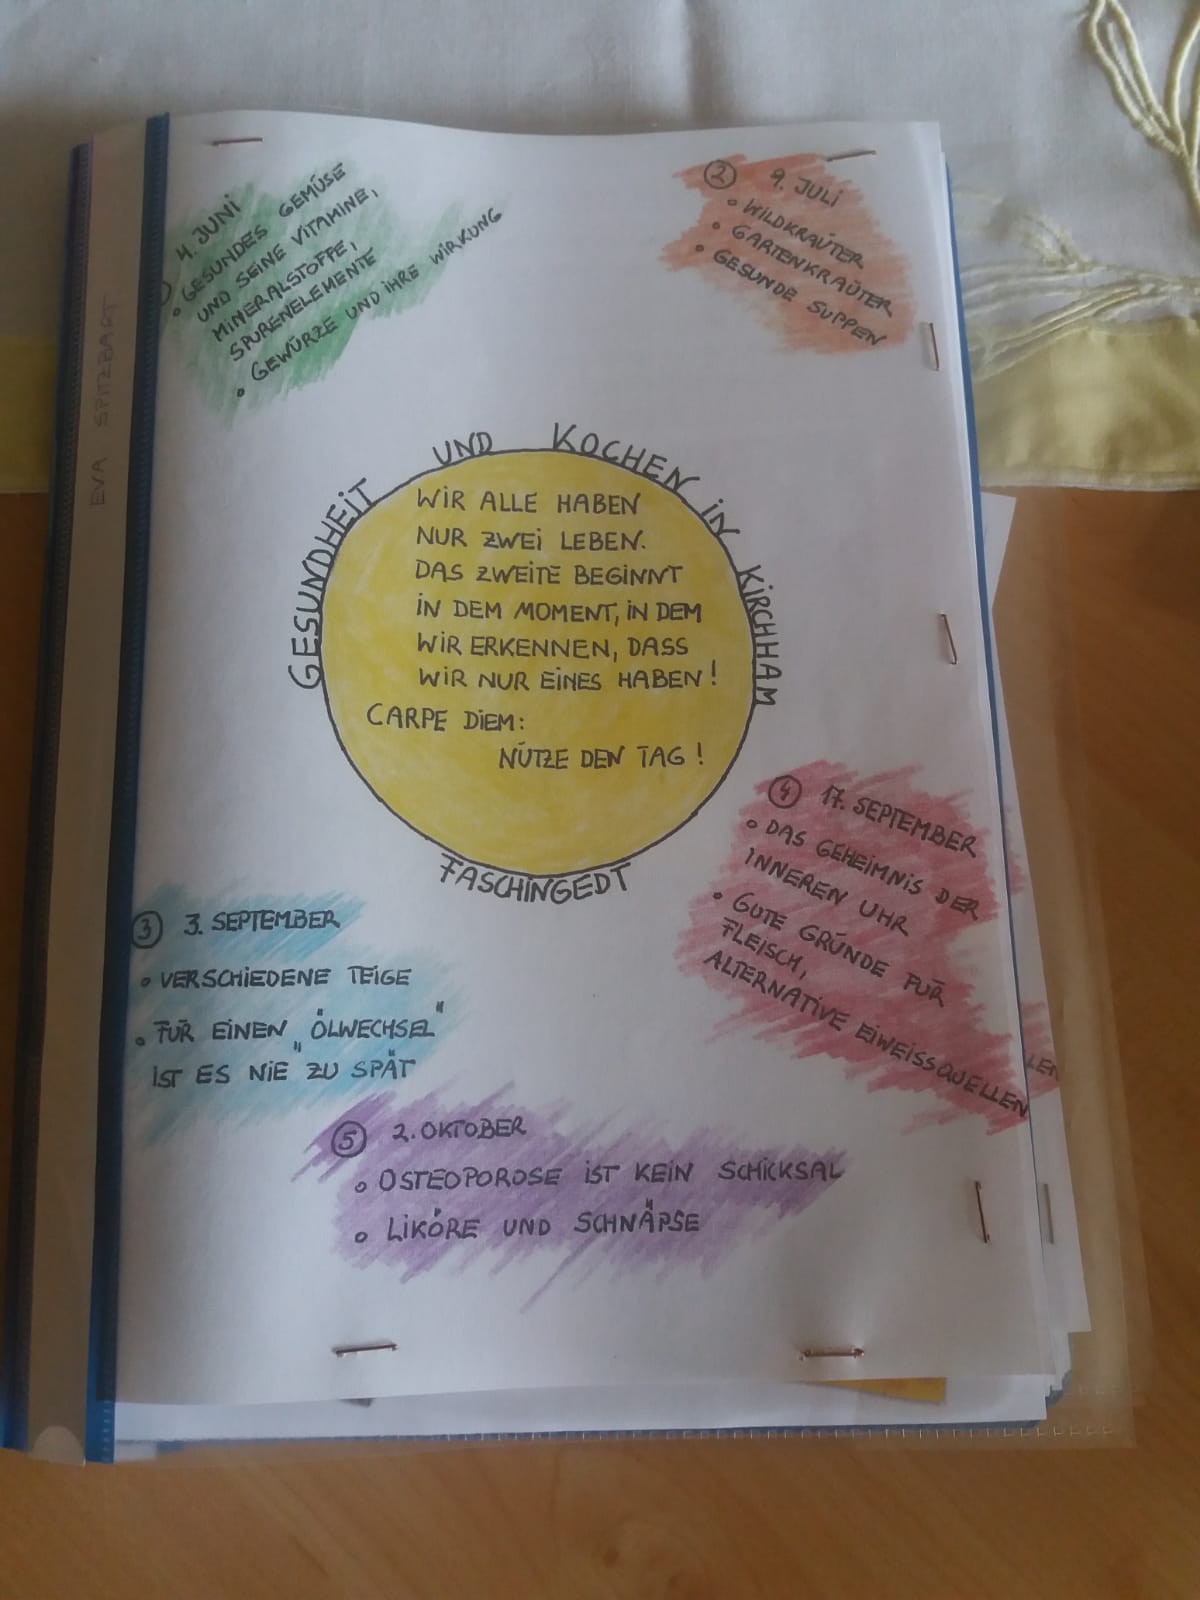 EVA SPITZBART
4. JUNI
• GESUNDES GEMÜSE
UND SEINE VITAMINE,
MINERALSTOFFE,
SPURENELEMENTE
• GEWÜRZE UND IHRE WIRKUNG
② 9. JULI
• WILDKRÄUTER
• GARTENKRÄUTER
• GESUNDE SUPPEN
GESUNDHEIT UND KOCHEN IN KIRCHHAM
WIR ALLE HABEN
NUR ZWEI LEBEN.
DAS ZWEITE BEGINNT
IN DEM MOMENT, IN DEM
WIR ERKENNEN, DASS
WIR NUR EINES HABEN!
CARPE DIEM:
NÜTZE DEN TAG!
FASCHINGEDT
③ 3. SEPTEMBER
• VERSCHIEDENE TEIGE
• FÜR EINEN „ÖLWECHSEL"
IST ES NIE ZU SPÄT
④ 17. SEPTEMBER
• DAS GEHEIMNIS DER
INNEREN UHR
• GUTE GRÜNDE FÜR
FLEISCH,
ALTERNATIVE EIWEISSQUELLEN
LEN
⑤ 2. OKTOBER
• OSTEOPOROSE IST KEIN SCHICKSAL
• LIKÖRE UND SCHNÄPSE